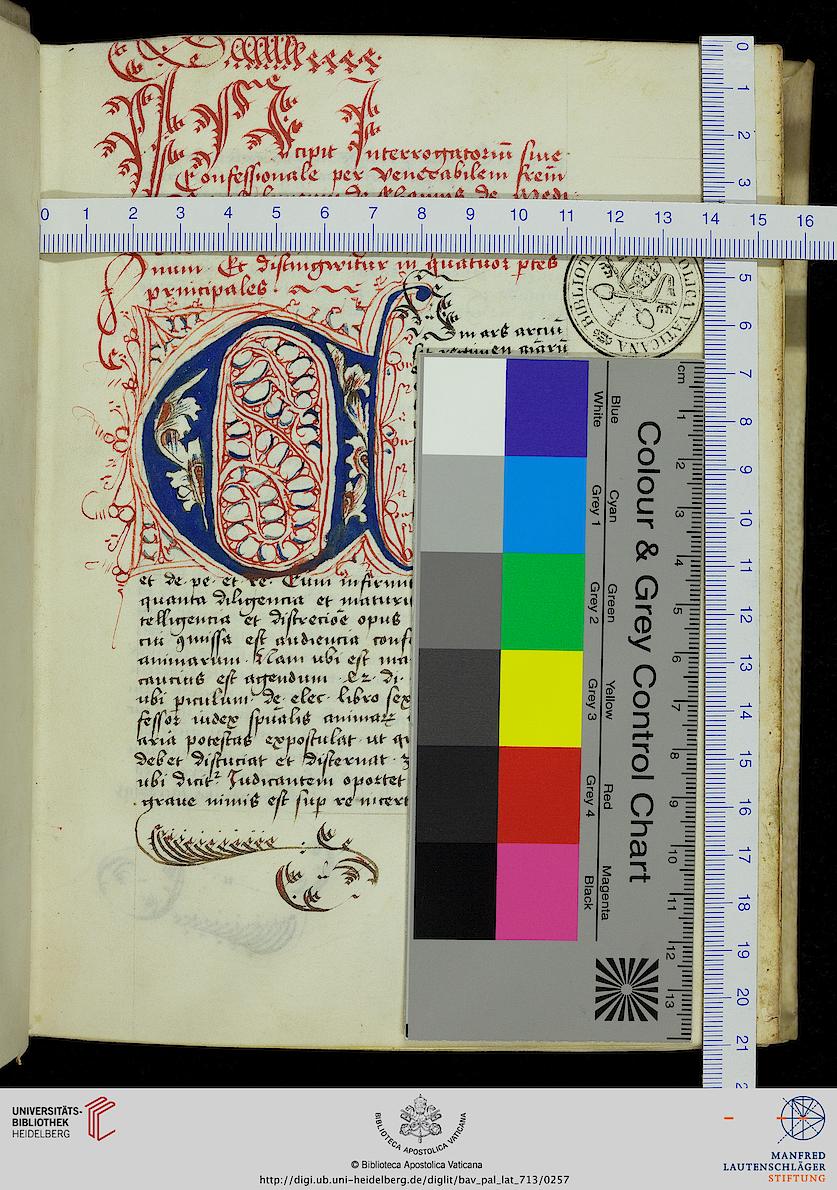 Incipit Interrogatoriū siue
Confessionale per venerabilem frem̄
de de Medi
num Et distingwitur in quatuor ptes
principales
m ars artiū
regimen aīarū
et de pe et re Cum infirmi
quanta diligencia et maturi
telligencia et discrecōe opus
cui 9missa est audiencia conf
animarum Nam ubi est ma
caucius est agendum di
ubi piculum de elec libro sex
fessor iudex spūalis animarꝝ
aria potestas expostulat ut
debet discuciat et discernat
ubi dicitr Iudicantem oportet
graue nimis est sup re incert
0 1 2 3 4 5 6 7 8 9 10 11 12 13 14 15 16
0 1 2 3 5 6 7 8 9 10 11 12 13 14 15 16 17 18 19 20 21
BIBLIOTECA APOSTOLICA VATICANA
Colour & Grey Control Chart
Blue Cyan Green Yellow Red Magenta
White Grey 1 Grey 2 Grey 3 Grey 4 Black
cm 1 2 3 4 5 6 7 8 9 10 11 12 13
UNIVERSITÄTS-
BIBLIOTHEK
HEIDELBERG
BIBLIOTECA APOSTOLICA VATICANA
© Biblioteca Apostolica Vaticana
http://digi.ub.uni-heidelberg.de/diglit/bav_pal_lat_713/0257
MANFRED
LAUTENSCHLÄGER
STIFTUNG